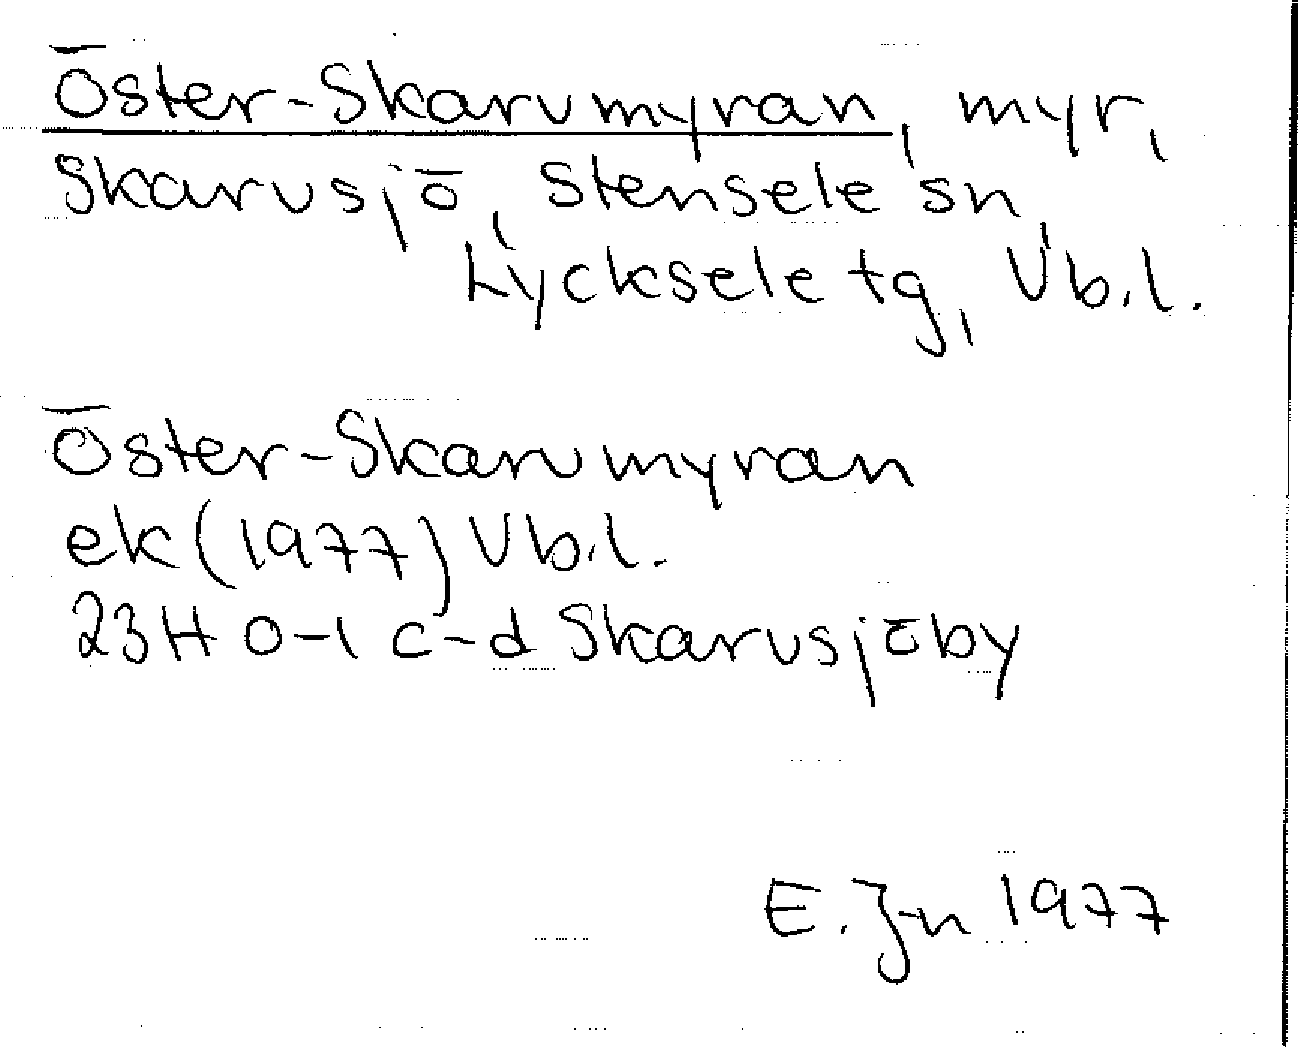 Öster-Skarvmyran, myr,
Skarvsjö, Stensele sn,
Lycksele tg, Vb.l.
Öster-Skarvmyran
ek (1977) Vb.l.
23H 0-1 c-d Skarvsjöby
E. J-n 1977